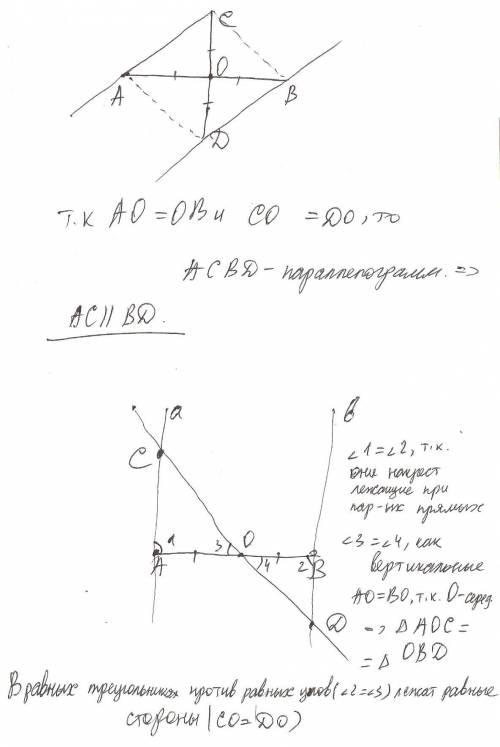 C
O
A
B
D
т.к AO = OB и CO = DO, то
ACBD - параллелограмм. =>
AC || BD.
a
b
C
∠1=∠2, т.к.
они накрест
лежащие при
пар-ых прямых
1
3
O
A
4
2
B
∠3=∠4, как
вертикальные
AO=BO, т.к. O-серед
D
=> △ AOC =
= △ OBD
В равных треугольниках против равных углов (∠2=∠3) лежат равные
стороны (CO=DO)